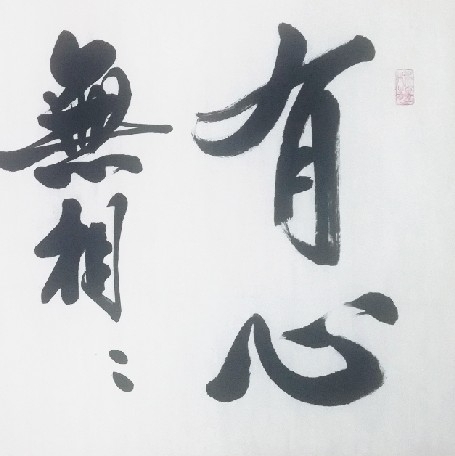 有心
無相：